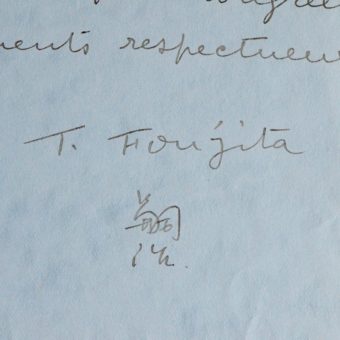 ments respectueu
T. Foujita
嗣治